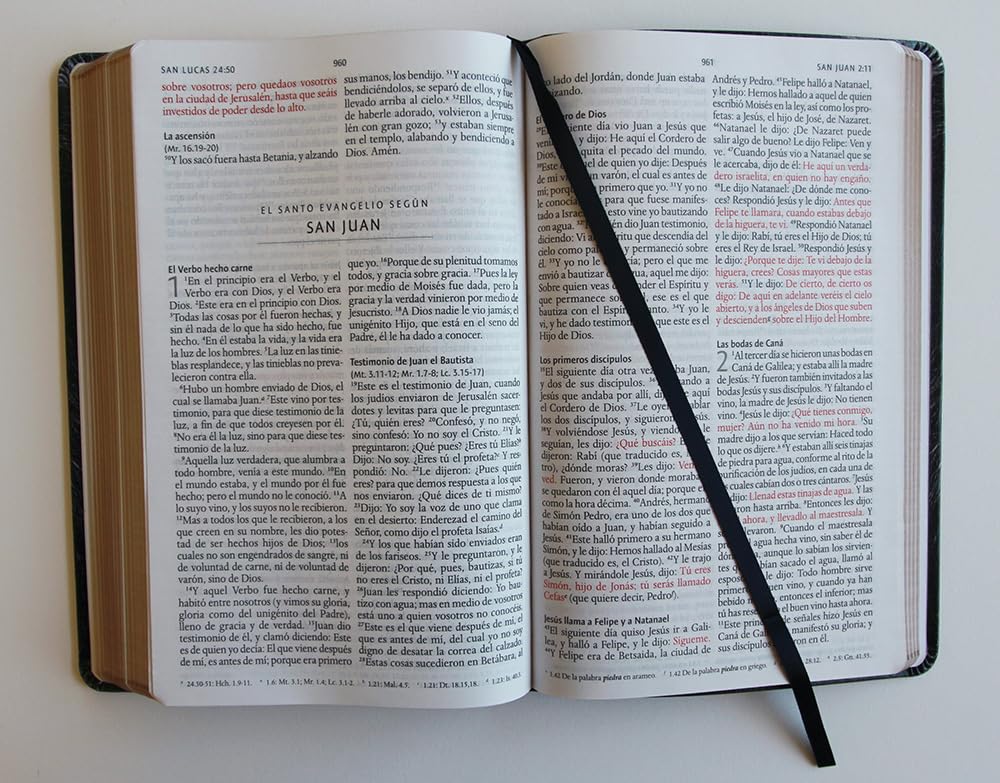 SAN LUCAS 24:50
960
sobre vosotros; pero quedaos vosotros
en la ciudad de Jerusalén, hasta que seáis
investidos de poder desde lo alto.
La ascensión
(Mr. 16.19-20)
50Y los sacó fuera hasta Betania, y alzando
sus manos, los bendijo. 51Y aconteció que
bendiciéndolos, se separó de ellos, y fue
llevado arriba al cielo. 52Ellos, después
de haberle adorado, volvieron a Jerusa-
lén con gran gozo; 53y estaban siempre
en el templo, alabando y bendiciendo a
Dios. Amén.
EL SANTO EVANGELIO SEGÚN
SAN JUAN
El Verbo hecho carne
1 1En el principio era el Verbo, y el
Verbo era con Dios, y el Verbo era
Dios. 2Este era en el principio con Dios.
3Todas las cosas por él fueron hechas, y
sin él nada de lo que ha sido hecho, fue
hecho. 4En él estaba la vida, y la vida era
la luz de los hombres. 5La luz en las tinie-
blas resplandece, y las tinieblas no preva-
lecieron contra ella.
6Hubo un hombre enviado de Dios, el
cual se llamaba Juan. 7Este vino por tes-
timonio, para que diese testimonio de la
luz, a fin de que todos creyesen por él.
8No era él la luz, sino para que diese tes-
timonio de la luz.
9Aquella luz verdadera, que alumbra a
todo hombre, venía a este mundo. 10En
el mundo estaba, y el mundo por él fue
hecho; pero el mundo no le conoció. 11A
lo suyo vino, y los suyos no le recibieron.
12Mas a todos los que le recibieron, a los
que creen en su nombre, les dio potes-
tad de ser hechos hijos de Dios; 13los
cuales no son engendrados de sangre, ni
de voluntad de carne, ni de voluntad de
varón, sino de Dios.
14Y aquel Verbo fue hecho carne, y
habitó entre nosotros (y vimos su gloria,
gloria como del unigénito del Padre),
lleno de gracia y de verdad. 15Juan dio
testimonio de él, y clamó diciendo: Este
es de quien yo decía: El que viene después
de mí, es antes de mí; porque era primero
que yo. 16Porque de su plenitud tomamos
todos, y gracia sobre gracia. 17Pues la ley
por medio de Moisés fue dada, pero la
gracia y la verdad vinieron por medio de
Jesucristo. 18A Dios nadie le vio jamás; el
unigénito Hijo, que está en el seno del
Padre, él le ha dado a conocer.
Testimonio de Juan el Bautista
(Mt. 3.11-12; Mr. 1.7-8; Lc. 3.15-17)
19Este es el testimonio de Juan, cuando
los judíos enviaron de Jerusalén sacer-
dotes y levitas para que le preguntasen:
¿Tú, quién eres? 20Confesó, y no negó,
sino confesó: Yo no soy el Cristo. 21Y le
preguntaron: ¿Qué pues? ¿Eres tú Elías?
Dijo: No soy. ¿Eres tú el profeta? Y res-
pondió: No. 22Le dijeron: ¿Pues quién
eres? para que demos respuesta a los que
nos enviaron. ¿Qué dices de ti mismo?
23Dijo: Yo soy la voz de uno que clama
en el desierto: Enderezad el camino del
Señor, como dijo el profeta Isaías.
24Y los que habían sido enviados eran
de los fariseos. 25Y le preguntaron, y le
dijeron: ¿Por qué, pues, bautizas, si tú
no eres el Cristo, ni Elías, ni el profeta?
26Juan les respondió diciendo: Yo bau-
tizo con agua; mas en medio de vosotros
está uno a quien vosotros no conocéis.
27Este es el que viene después de mí, el
que es antes de mí, del cual yo no soy
digno de desatar la correa del calzado.
28Estas cosas sucedieron en Betábara, al
24.50-51: Hch. 1.9-11. 1.6: Mt. 3.1; Mr. 1.4; Lc. 3.1-2. 1.21: Mal. 4.5. 1.21: Dt. 18.15,18. 1.23: Is. 40.3.
961
SAN JUAN 2:11
lado del Jordán, donde Juan estaba
izando.
ro de Dios
iente día vio Juan a Jesús que
y dijo: He aquí el Cordero de
quita el pecado del mundo.
30Este el de quien yo dije: Después
de mí un varón, el cual es antes de
mí; porq primero que yo. 31Y yo no
le conocía que fuese manifes-
tado a Israe esto vine yo bautizando
con agua. én dio Juan testimonio,
diciendo: Vi al ritu que descendía del
cielo como pa y permaneció sobre
él. 33Y yo no le ía; pero el que me
envió a bautizar agua, aquel me dijo:
Sobre quien veas nder el Espíritu y
que permanece s l, ese es el que
bautiza con el Espíritu 34Y yo le
vi, y he dado testimoni que este es el
Hijo de Dios.
Los primeros discípulos
35El siguiente día otra ve ba Juan,
y dos de sus discípulos. ando a
Jesús que andaba por allí, di e aquí
el Cordero de Dios. 37Le oye blar
los dos discípulos, y siguiero ús.
38Y volviéndose Jesús, y viendo le
seguían, les dijo: ¿Qué buscáis? E
dijeron: Rabí (que traducido es,
tro), ¿dónde moras? 39Les dijo: Ven
ved. Fueron, y vieron donde morab
se quedaron con él aquel día; porque e
como la hora décima. 40Andrés, herman
de Simón Pedro, era uno de los dos que
habían oído a Juan, y habían seguido a
Jesús. 41Este halló primero a su hermano
Simón, y le dijo: Hemos hallado al Mesías
(que traducido es, el Cristo). 42Y le trajo
a Jesús. Y mirándole Jesús, dijo: Tú eres
Simón, hijo de Jonás; tú serás llamado
Cefas (que quiere decir, Pedro).
Jesús llama a Felipe y a Natanael
43El siguiente día quiso Jesús ir a Gali-
lea, y halló a Felipe, y le dijo: Sígueme.
44Y Felipe era de Betsaida, la ciudad de
Andrés y Pedro. 45Felipe halló a Natanael,
y le dijo: Hemos hallado a aquel de quien
escribió Moisés en la ley, así como los pro-
fetas: a Jesús, el hijo de José, de Nazaret.
46Natanael le dijo: ¿De Nazaret puede
salir algo de bueno? Le dijo Felipe: Ven y
ve. 47Cuando Jesús vio a Natanael que se
le acercaba, dijo de él: He aquí un verda-
dero israelita, en quien no hay engaño.
48Le dijo Natanael: ¿De dónde me cono-
ces? Respondió Jesús y le dijo: Antes que
Felipe te llamara, cuando estabas debajo
de la higuera, te vi. 49Respondió Natanael
y le dijo: Rabí, tú eres el Hijo de Dios; tú
eres el Rey de Israel. 50Respondió Jesús y
le dijo: ¿Porque te dije: Te vi debajo de la
higuera, crees? Cosas mayores que estas
verás. 51Y le dijo: De cierto, de cierto os
digo: De aquí en adelante veréis el cielo
abierto, y a los ángeles de Dios que suben
y descienden sobre el Hijo del Hombre.
Las bodas de Caná
2 1Al tercer día se hicieron unas bodas en
Caná de Galilea; y estaba allí la madre
de Jesús. 2Y fueron también invitados a las
bodas Jesús y sus discípulos. 3Y faltando el
vino, la madre de Jesús le dijo: No tienen
vino. 4Jesús le dijo: ¿Qué tienes conmigo,
mujer? Aún no ha venido mi hora. 5Su
madre dijo a los que servían: Haced todo
lo que os dijere. 6Y estaban allí seis tinajas
de piedra para agua, conforme al rito de la
purificación de los judíos, en cada una de
s cuales cabían dos o tres cántaros. 7Jesús
dijo: Llenad estas tinajas de agua. Y las
ron hasta arriba. 8Entonces les dijo:
ahora, y llevadlo al maestresala. Y
ron. 9Cuando el maestresala
agua hecha vino, sin saber él de
dónd , aunque lo sabían los sirvien-
tes qu bían sacado el agua, llamó al
espos le dijo: Todo hombre sirve
primer n vino, y cuando ya han
bebido m , entonces el inferior; mas
tú has res el buen vino hasta ahora.
11Este prin de señales hizo Jesús en
Caná de Gal manifestó su gloria; y
sus discípulos on en él.
1.42 De la palabra piedra en arameo. 1.42 De la palabra piedra en griego. 28.12. 2.5: Gn. 41.55.